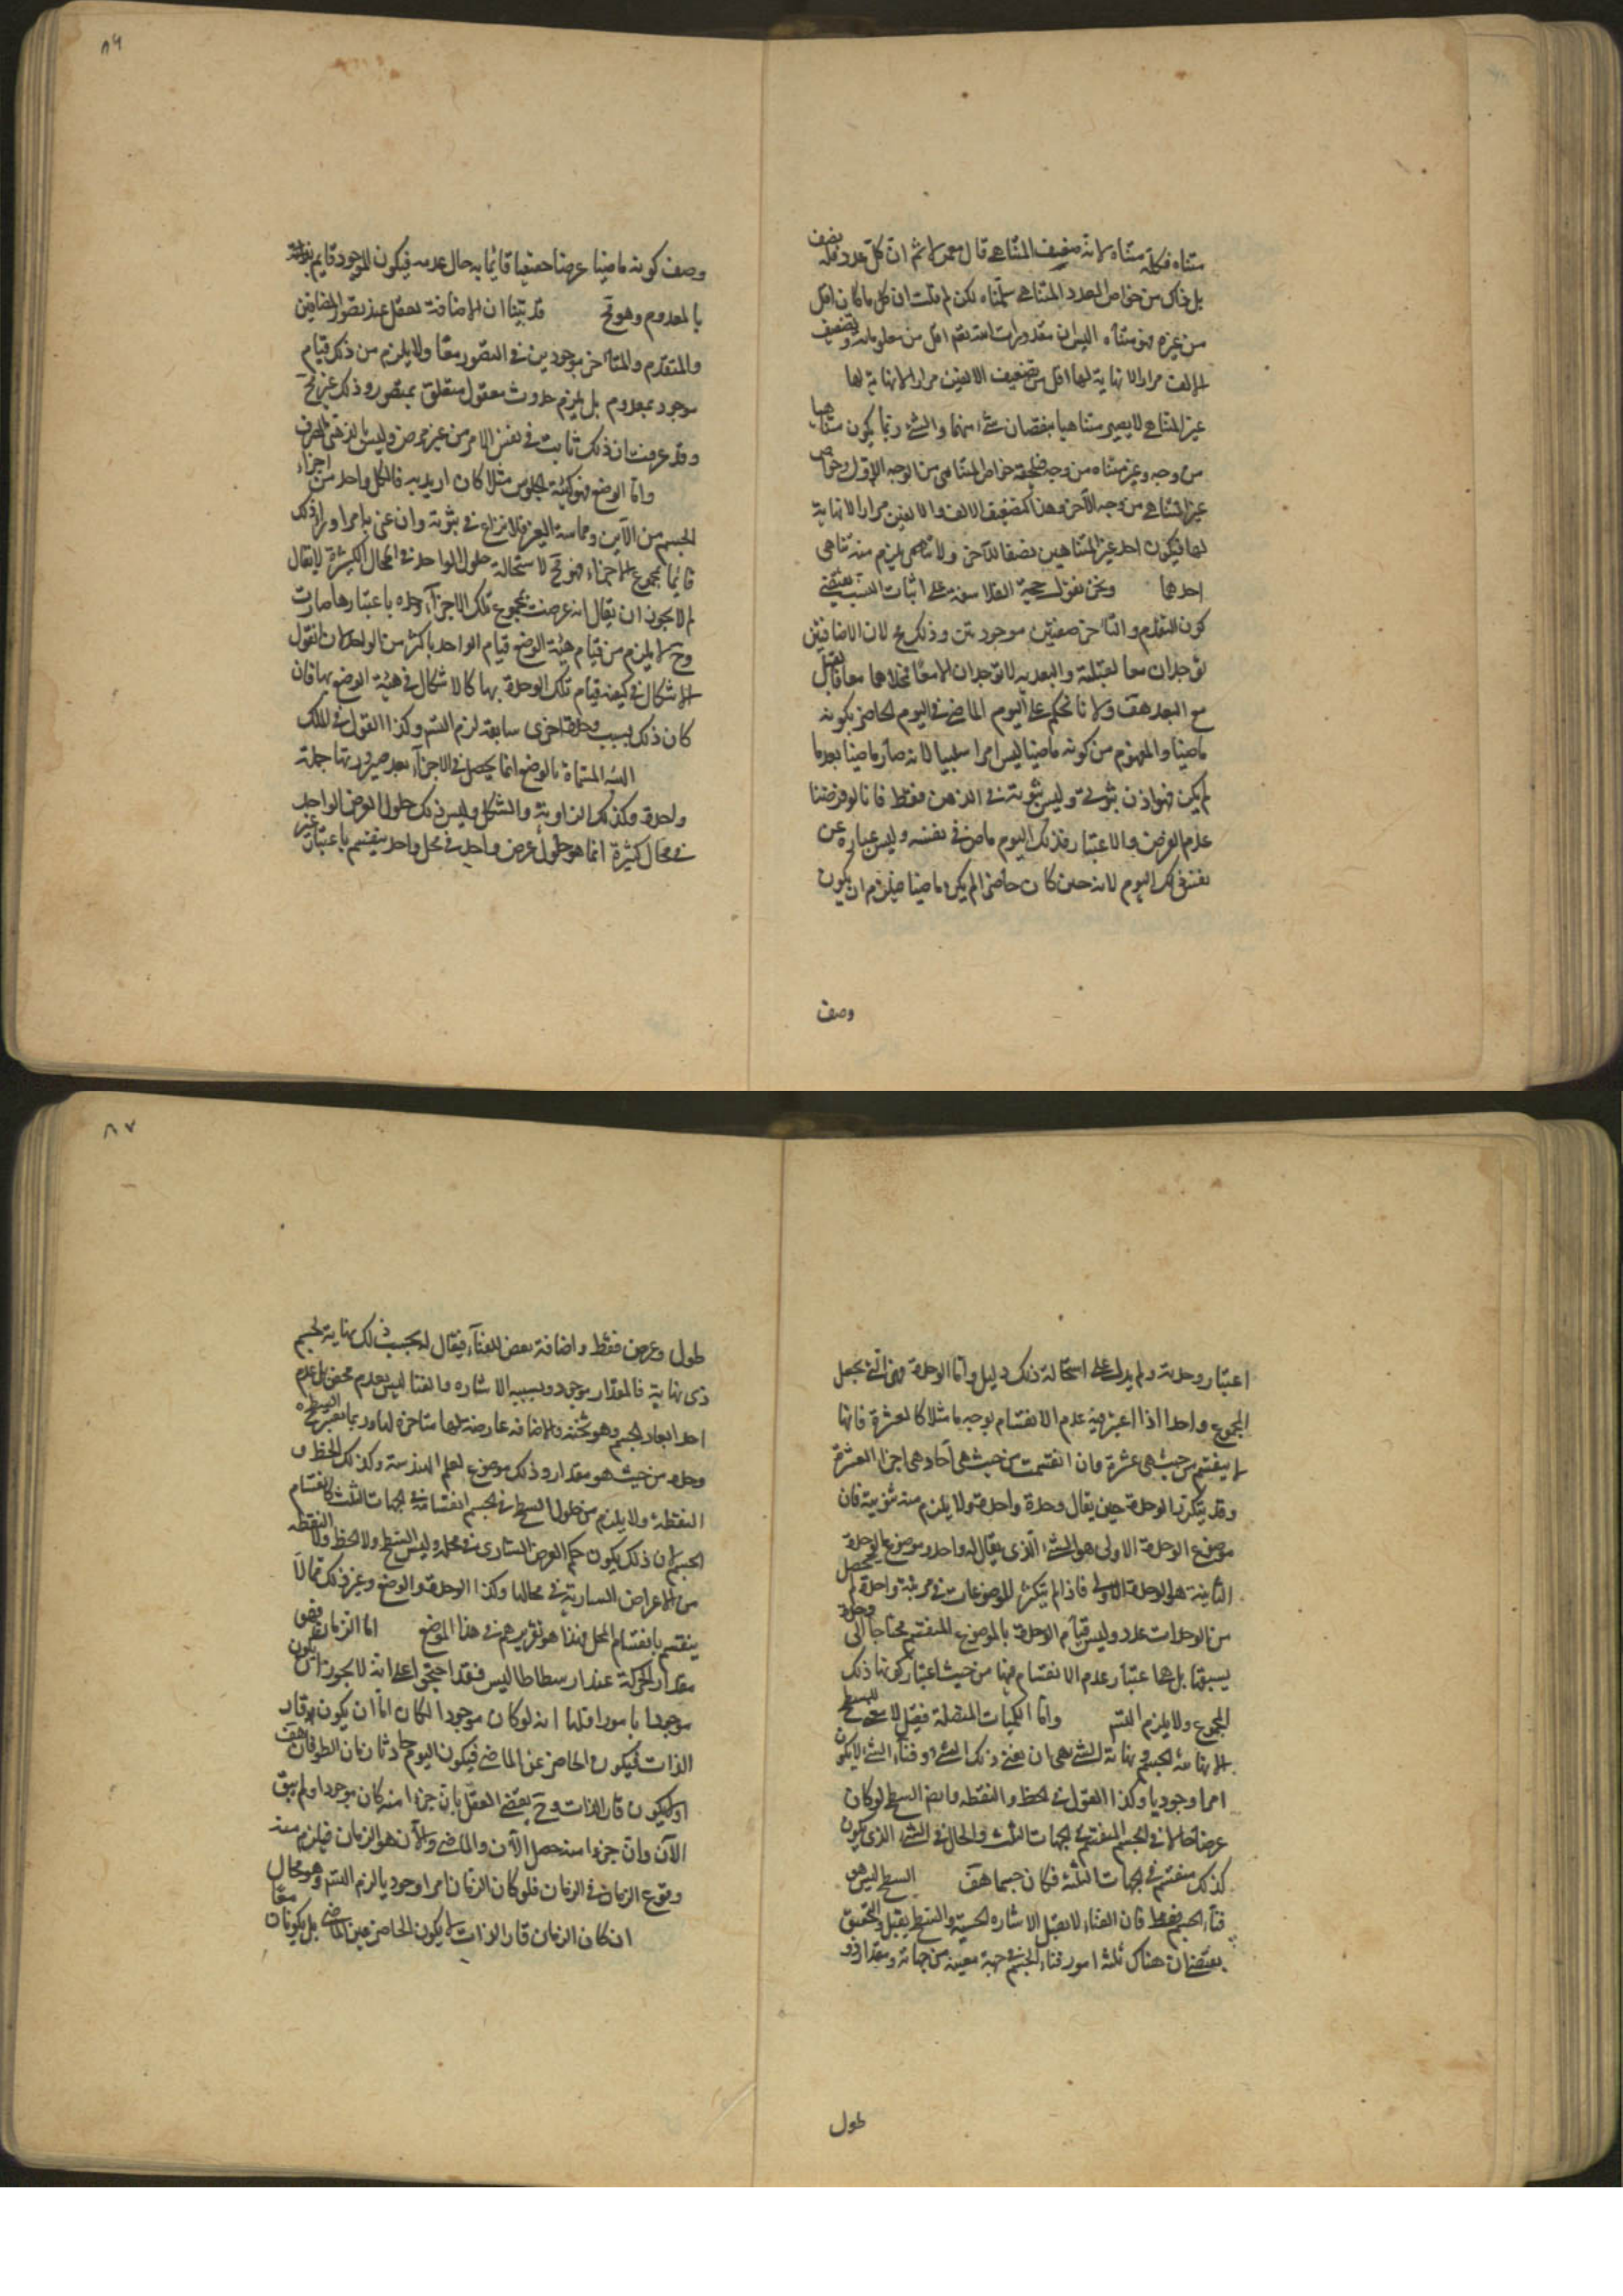 متناه فكله متناه لانه ضعيف المتناهى قال معمر لا ثم ان كل عدد فله نصف
بل ذاك من خواص العدد المتناهى سلمناه لكن لم قلت ان كل ما كان اقل
من غيره فهو متناه اليس ان مقدورات الله تعم اقل من معلوماته وتضعيف
الالف مرارا لا نهاية لها اقل من تضعيف الالفين مرارا لا نهاية لها
غير المتناهى لا يصير متناهيا بنقصان شئ منها والشئ ربما يكون متناهيا
من وجه وغير متناه من وجه فيلحقه خواص المتناهى من الوجه الاول وخواص
غير المتناهى من وجه الآخر وهذا كتضعيف الالف والالفين مرارا لا نهاية
لها فيكون احد غير المتناهيين نصفا للآخر ولا يلزم منه تناهى
احدهما ونحن نقول حجية الفلاسفة على اثبات النسب يقتضى
كون التقدم والتأخر صفتين موجودتين وذلك مح لان الاضافتين
توجدان معا فالقبلية والبعدية لا توجدان الا معا فمحلاهما معا فالقبل
مع البعد هف ولانا نحكم على اليوم الماضى فى اليوم الحاضر بكونه
ماضيا والمفهوم من كونه ماضيا ليس امرا سلبيا لانه صار ماضيا بعد ما
لم يكن فهو اذن ثبوتى وليس ثبوته فى الذهن فقط فانا لو فرضنا
عدم الفرض والاعتبار فذلك اليوم ماض فى نفسه وليس عبارة عن
نفس ذلك اليوم لانه حين كان حاضرا لم يكن ماضيا فيلزم ان يكون
وصف
٨٦
وصف كونه ماضيا عرضا حقيقيا قائما به حال عدمه فيكون الموجود قايم بذاته
بالمعدوم وهو مح قد بينا ان الاضافة تعقل عند تصور المضافين
والمتقدم والمتأخر موجودين فى التصور معا ولا يلزم من ذلك قيام
موجود بمعدوم بل يلزم حدوث معقول متعلق بمتصور وذلك غير مح
وقد عرفت ان ذلك ثابت فى نفس الامر من غير فرض وليس بالذهنى الصرف
واما الوضع فهو كهيئة الجلوس مثلا كان اريد به فالكل واحد من اجزاء
الجسم من الاين ومماسة الغير فلا نزاع فى ثبوته وان عنى به امرا وراء ذلك
قائما بمجموع الاجزاء فهو مح لاستحالة حلول الواحد فى المحال الكثيرة لا يقال
لم لا يجوز ان يقال انه عرضت لمجموع تلك الاجزآء وحدة باعتبارها صارت
وح لا يلزم من قيام هيئة الوضع قيام الواحد باكثر من الواحد لانا نقول
الاشكال فى كيفية قيام تلك الوحدة بها كالاشكال فى هيئة الوضع بها فان
كان ذلك بسبب وحدة اخرى سابقة لزم التس وكذا القول فى الملك
الهيئة المسماة بالوضع انما يحصل فى الاجزآء بعد صيرورتها جملة
واحدة وكذلك الزاوية والشكل وليس ذلك حلول العرض الواحد
فى محال كثيرة انما هو حلول عرض واحد فى محل واحد ينقسم باعتبار غير
اعتبار وحدته ولم يدل على استحالة ذلك دليل واما الوحدة فهى التى تجعل
المجموع واحدا اذا اعتبر فيه عدم الانقسام بوجه ما مثلا كالعشرة فانها
لا ينقسم من حيث هى عشرة وان انقسمت من حيث هى آحاد هى اجزاء العشرة
وقد يتكرر الوحدة حين يقال وحدة واحدة ولا يلزم منه تس فان
موضوع الوحدة الاولى هو الشئ الذى يقال له واحد وموضوع الوحدة
الثانية هو الوحدة الاولى فاذا لم يتكثر الموضوعات فى مرتبة واحدة لم يحصل
من الوحدات عدد وليس قيام الوحدة بالموضوع المنقسم محتاجا الى وحدة
يسبقها بل هى اعتبار عدم الانقسام فيها من حيث اعتبار كونها ذلك
المجموع ولا يلزم التس واما الكميات المتصلة فقيل لا معنى للسطح
الا نهاية الجسم ونهاية الشئ هى ان يفنى ذلك الشئ وفناء الشئ لا يكون
امرا وجوديا وكذا القول فى الخط والنقطه وايضا السطح لو كان
عرضا حالا فى الجسم المنقسم فى الجهات الثلث والحال فى الشئ الذى يكون
كذلك منقسم فى الجهات الثلثة فكان جسما هف السطح ليس هو
فناء الجسم فقط فان الفناء لا يقبل الاشارة الحسية والسطح يقبل والتحقيق
يقتضى ان هناك ثلثة امور فناء الجسم فى جهة معينة من جهاته ومقدار ذو
طول
٨٧
طول وعرض فقط واضافة تعرض للفناء فيقال له بحسب ذلك نهاية لجسم
ذى نهاية فالمقدار موجود وبسببه الاشارة والفناء ليس بعدم محض بل عدم
احد ابعاد الجسم وهو ثخنه والاضافه عارضة لها متأخرة لها وربما يعتبر السطح
وحده من حيث هو مقدار وذلك موضوع لعلم الهندسة وكذلك الخط و
النقطة ولا يلزم من حلول السطح فى الجسم انقسامه فى الجهات الثلث كانقسام
الجسم لان ذلك يكون حكم العرض السارى فى محله وليس السطح ولا الخط ولا النقطه
من الاعراض السارية فى محالها وكذا الوحدة والوضع وغير ذلك مما لا
ينقسم بانقسام المحل فهذا هو تقريرهم فى هذا الموضع اما الزمان فهو
مقدار الحركة عند ارسطاطاليس فقد احتجوا على انه لا يجوز ان يكون
موجودا بامور اولها انه لو كان موجودا لكان اما ان يكون قار
الذات فيكون الحاضر عين الماضى فيكون اليوم حادثا زمان الطوفان هف
او لا يكون قار الذات وح يقتضى العقل بان جزءا منه كان موجودا ولم يبق
الآن وان جزءا منه حصل الآن والماضى والآن هو الزمان فيلزم منه
وقوع الزمان فى الزمان فلو كان الزمان امرا وجوديا لزم التس وهو محال
ان كان الزمان قار الذات لا يكون الحاضر عين الماضى بل يكونان معا